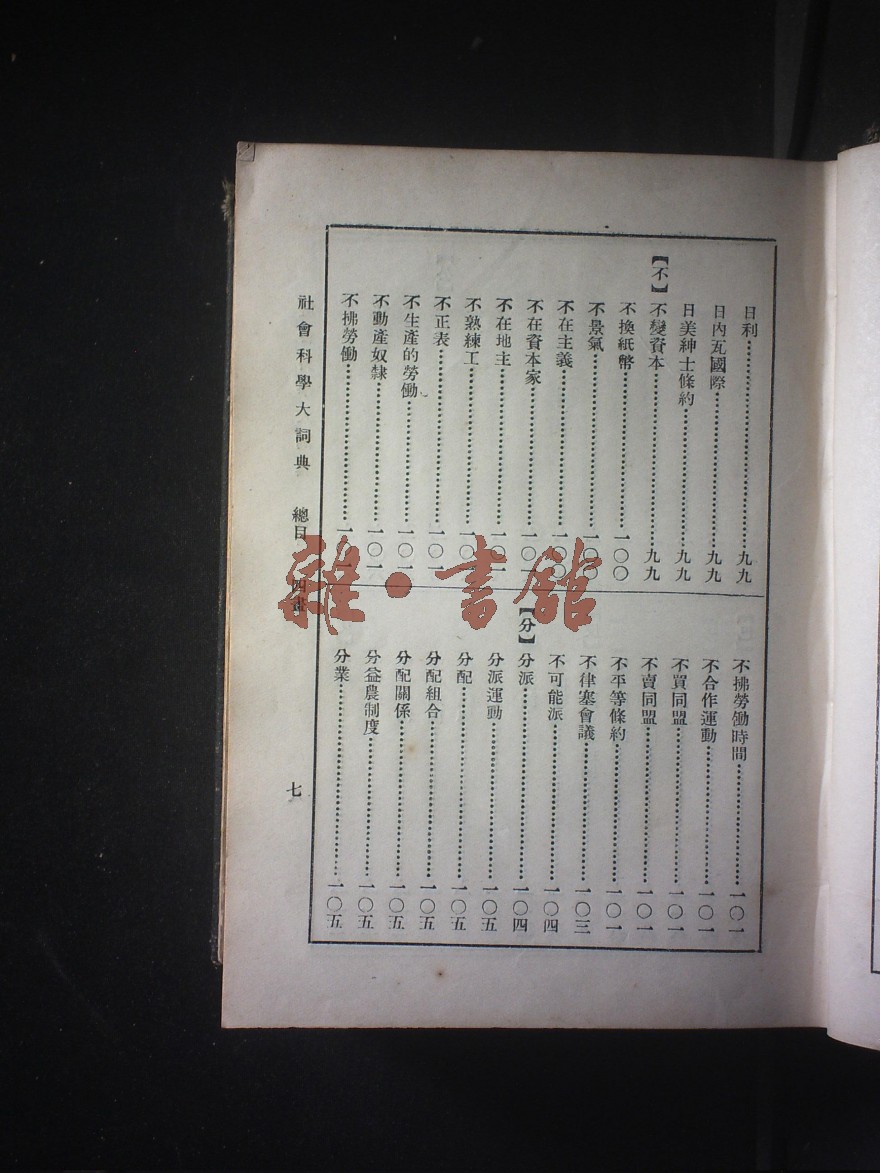 日利⋯⋯九九
日內瓦國際⋯⋯九九
日美紳士條約⋯⋯九九
【不】不變資本⋯⋯九九
不換紙幣⋯⋯一〇〇
不景氣⋯⋯一〇〇
不在主義⋯⋯一〇〇
不在資本家⋯⋯一〇一
不在地主⋯⋯
不熟練工⋯⋯一〇
不正表⋯⋯一〇一
不生產的勞働⋯⋯一〇一
不動產奴隸⋯⋯一〇一
不拂勞働⋯⋯一〇一
不拂勞働時間⋯⋯一〇一
不合作運動⋯⋯一〇一
不買同盟⋯⋯一〇一
不賣同盟⋯⋯一〇一
不平等條約⋯⋯一〇一
不律塞會議⋯⋯一〇三
不可能派⋯⋯一〇四
【分】分派⋯⋯一〇四
分派運動⋯⋯一〇五
分配⋯⋯一〇五
分配組合⋯⋯一〇五
分配關係⋯⋯一〇五
分益農制度⋯⋯一〇五
分業⋯⋯一〇五
社會科學大詞典 總目 四畫 七
雜·書館